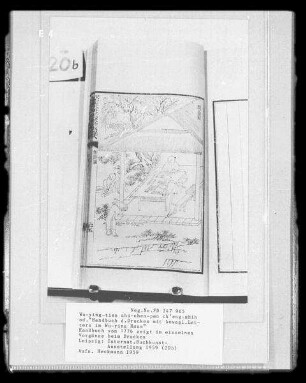 E4
20b
Neg.No.FD 147 865
Wu-ying-tien chü-chen-pan ch'eng-shih
od."Handbuch d.Druckes mit bewegl.Let-
tern im Wu-ying Haus"
Handbuch von 1776 zeigt in einzelnen
Vorgänge beim Drucken
Leipzig: Internat.Buchkunst-
Ausstellung 1959 (IBA)
Aufn. Heckmann 1959